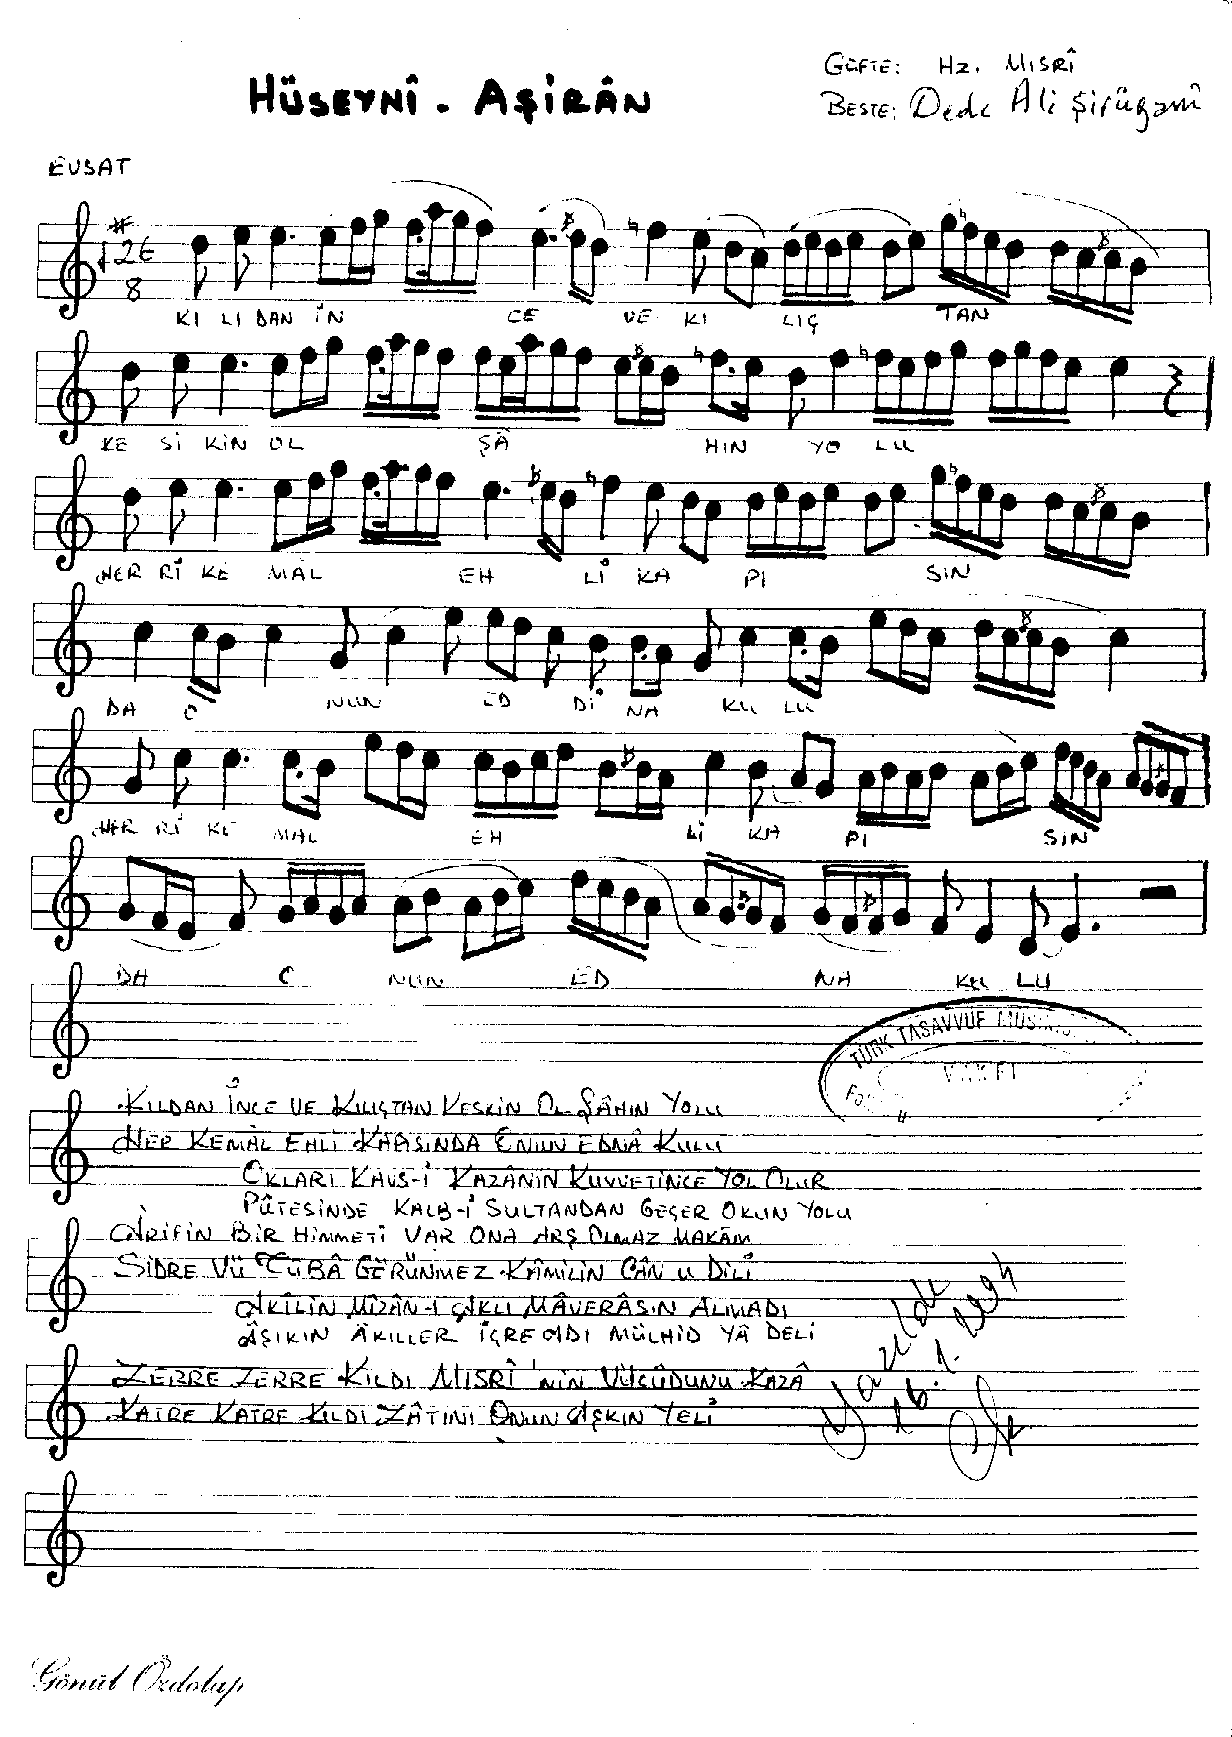 HÜSEYNÎ - AŞİRÂN
GÜFTE: Hz. MISRÎ
BESTE: Dede Ali Şirügânî
EVSAT
26
8
KI LI DAN İN CE VE KI LIÇ TAN
KE Sİ KİN OL ŞÂ HIN YO LU
HER Rİ KE MAL EH Lİ KA PI SIN
DA O NUN ED Dİ NA KU LU
HER Rİ KE MAL EH Lİ KA PI SIN
DA O NUN ED NA KU LU
TÜRK TASAVVUF
VAKFI
KILDAN İNCE VE KILIÇTAN KESKİN OL ŞÂHIN YOLU
HER KEMÂL EHLİ KAPISINDA ONUN EDNÂ KULU
OKLARI KAVS-İ KAZÂNIN KUVVETİNCE YOL OLUR
PÛTESİNDE KALB-İ SULTANDAN GEÇER OKUN YOLU
ÂRİFİN BİR HİMMETİ VAR ONA ARŞ OLMAZ MAKÂM
SİDRE VÜ TÛBÂ GÖRÜNMEZ KÂMİLİN CÂN U DİLİ
ÂKİLİN MÎZÂN-I AKLI MÂVERÂSIN ALMADI
ÂŞIKIN ÂKILLER İÇRE ADI MÜLHİD YÂ DELİ
ZERRE ZERRE KILDI MISRÎ'NİN VÜCÛDUNU KAZÂ
KATRE KATRE KILDI ZÂTINI ONUN AŞKIN YELİ
Gönül Özdolap